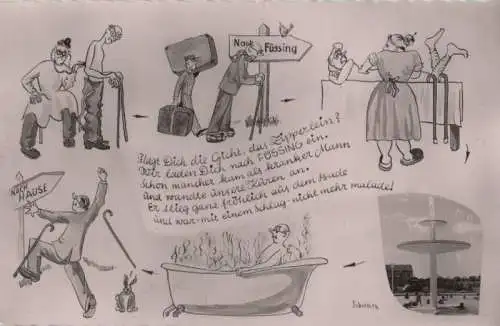 Nach Füssing
Plagt Dich die Gicht, das Zipperlein?
Wir laden Dich nach FÜSSING ein.
Schon mancher kam als kranker Mann
und wandte unsere Kuren an.
Er stieg ganz fröhlich aus dem Bade
und war mit einem Schlag - nicht mehr malade!
NACH
HAUSE